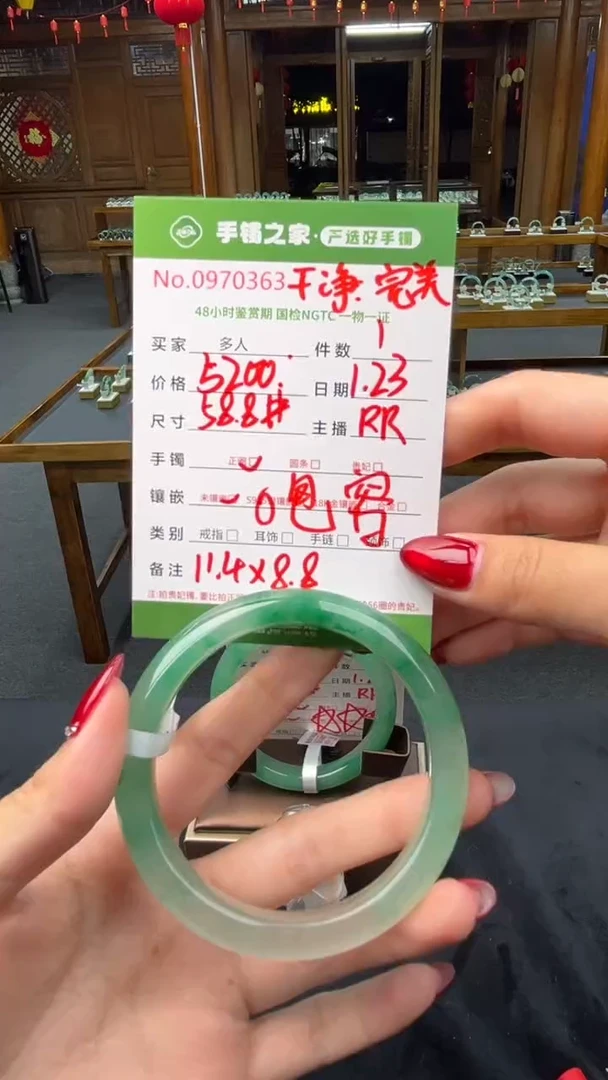 手镯之家·严选好手镯
No.0970363 干净 完美
48小时鉴赏期 国检NGTC 一物一证
买家 多人 件数 1
价格 5200. 日期 1.23
尺寸 58.8# 主播 RR
手镯 正圈 圆条 贵妃
镶嵌
类别 戒指 耳饰 手链
备注 11.4×8.8
日期 1.
主播 R